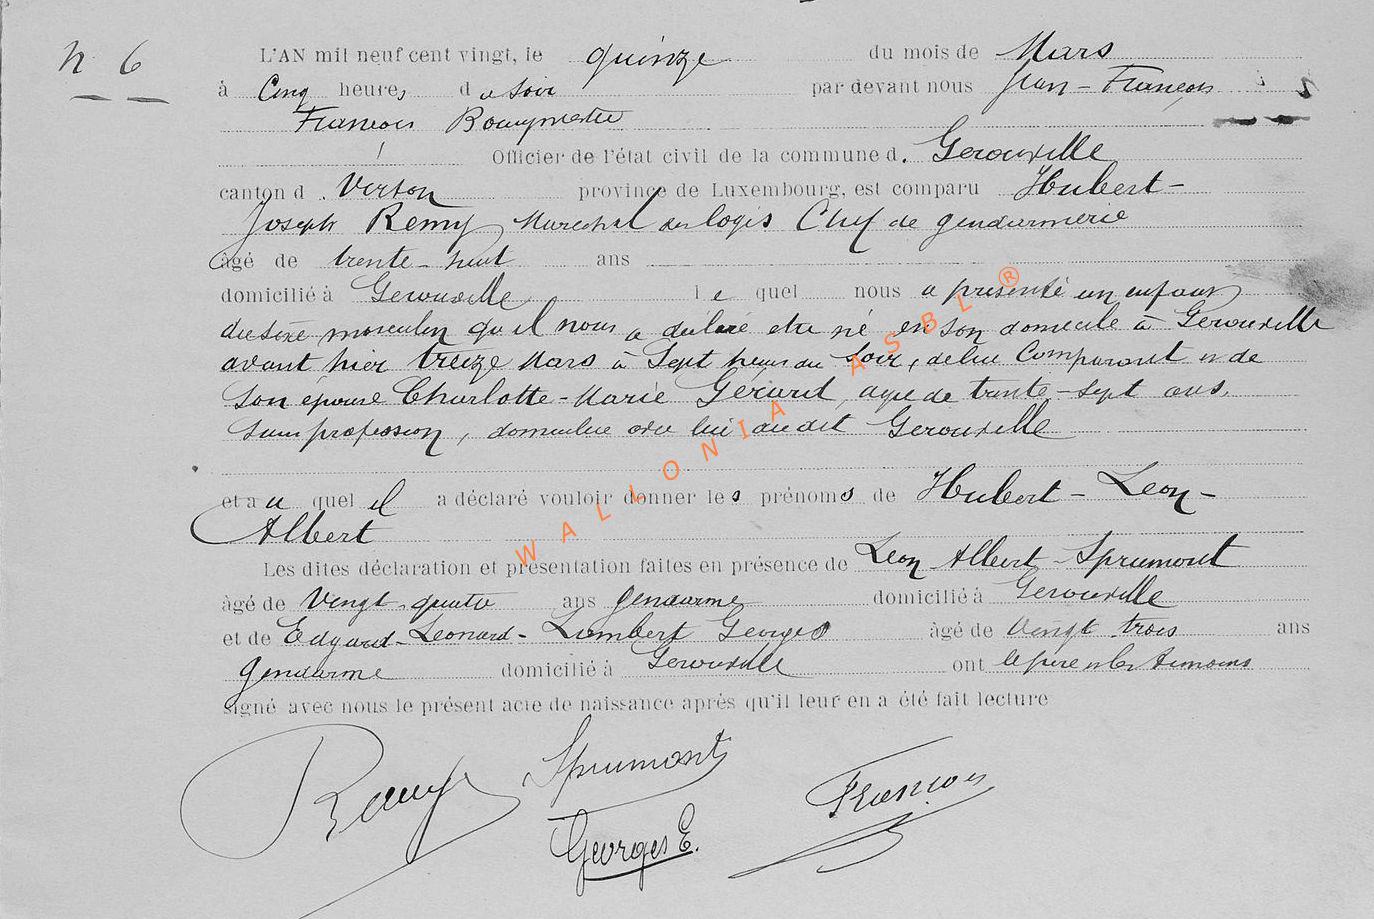 N 6
L'AN mil neuf cent vingt, le quinze du mois de Mars
à Cinq heures du soir par devant nous Jean-François
François Bourgmestre
Officier de l'état civil de la commune d. Gerouville
canton d. Virton province de Luxembourg, est comparu Hubert-
Joseph Remy Marechal des logis Chef de gendarmerie
âgé de trente-huit ans
domicilié à Gerouville lequel nous a présenté un enfant
du sexe masculin qu'il nous a déclaré etre né en son domicile à Gerouville
avant hier treize Mars à Sept heures du Soir, de lui Comparant et de
Son épouse Charlotte-Marie Gérard, agée de trente-sept ans,
Sans profession, domiciliée avec lui audit Gerouville
et auquel il a déclaré vouloir donner les prénoms de Hubert-Leon-
Albert
Les dites déclaration et présentation faites en présence de Leon-Albert-Sprumont
âgé de Vingt-quatre ans gendarme domicilié à Gerouville
et de Edgard-Leonard-Lambert Georges âgé de Vingt trois ans
gendarme domicilié à Gerouville ont le père et les temoins
signé avec nous le présent acte de naissance après qu'il leur en a été fait lecture
Remy Sprumont
François
Georges E.
WALLONIA ASBL ®